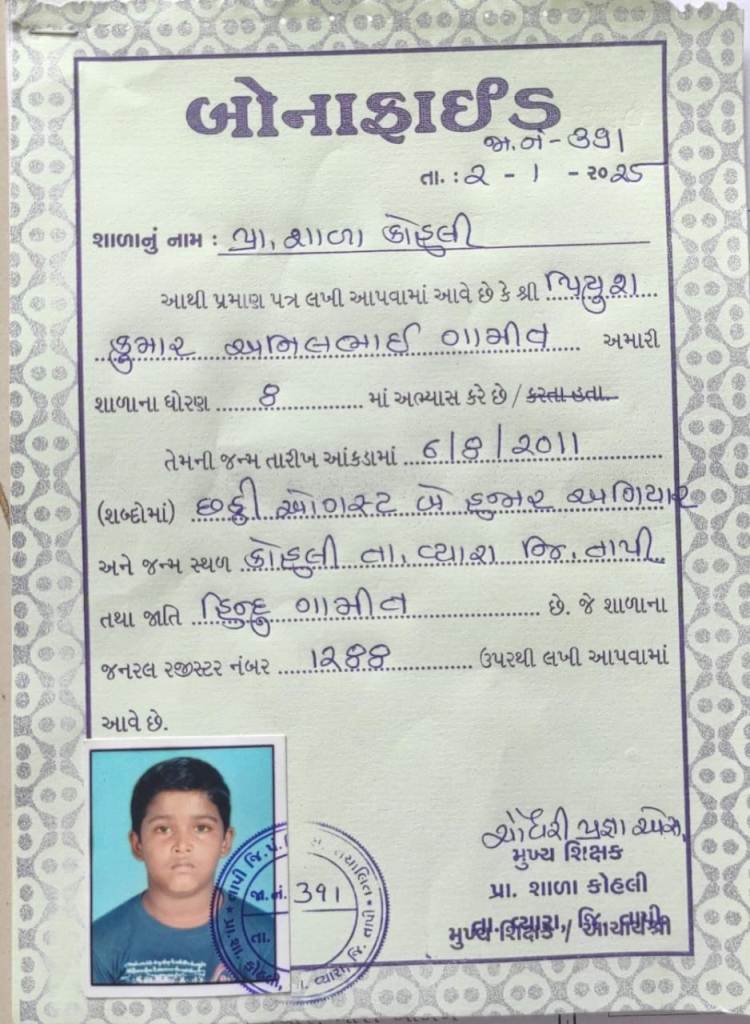 બોનાફાઈડ
જા.નં - ૩૭૧
તા. : ૨ - ૧ - ૨૦૨૫
શાળાનું નામ : પ્રા. શાળા કોહલી
આથી પ્રમાણ પત્ર લખી આપવામાં આવે છે કે શ્રી પિયુશ
કુમાર અનિલભાઈ ગામીત અમારી
શાળાના ધોરણ 8 માં અભ્યાસ કરે છે / કરતા હતા.
તેમની જન્મ તારીખ આંકડામાં 6/8/2011
(શબ્દોમાં) છઠ્ઠી ઓગસ્ટ બે હજાર અગિયાર
અને જન્મ સ્થળ કોહલી તા. વ્યારા જિ. તાપી
તથા જાતિ હિન્દુ ગામીત છે. જે શાળાના
જનરલ રજીસ્ટર નંબર 1288 ઉપરથી લખી આપવામાં
આવે છે.
ચૌધરી પ્રજ્ઞા એસ.
મુખ્ય શિક્ષક
પ્રા. શાળા કોહલી
તા. વ્યારા, જિ. તાપી
મુખ્ય શિક્ષક / આચાર્યશ્રી
તાપી જિ. પં. સંચાલિત
જા. નં. 391
તા.
પ્રા. શા. કોહલી, તા. વ્યારા જિ. તાપી